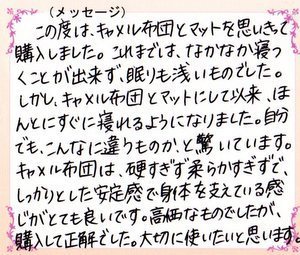 (メッセージ)
この度は、キャメル布団とマットを思いきって
購入しました。これまでは、なかなか寝つ
くことが出来ず、眠りも浅いものでした。
しかし、キャメル布団とマットにして以来、ほ
んとにすぐに寝れるようになりました。自分
でも、こんなに違うものか、と驚いています。
キャメル布団は、硬すぎず柔らかすぎずで、
しっかりとした安定感で身体を支えている感
じがとても良いです。高価なものでしたが、
購入して正解でした。大切に使いたいと思います。